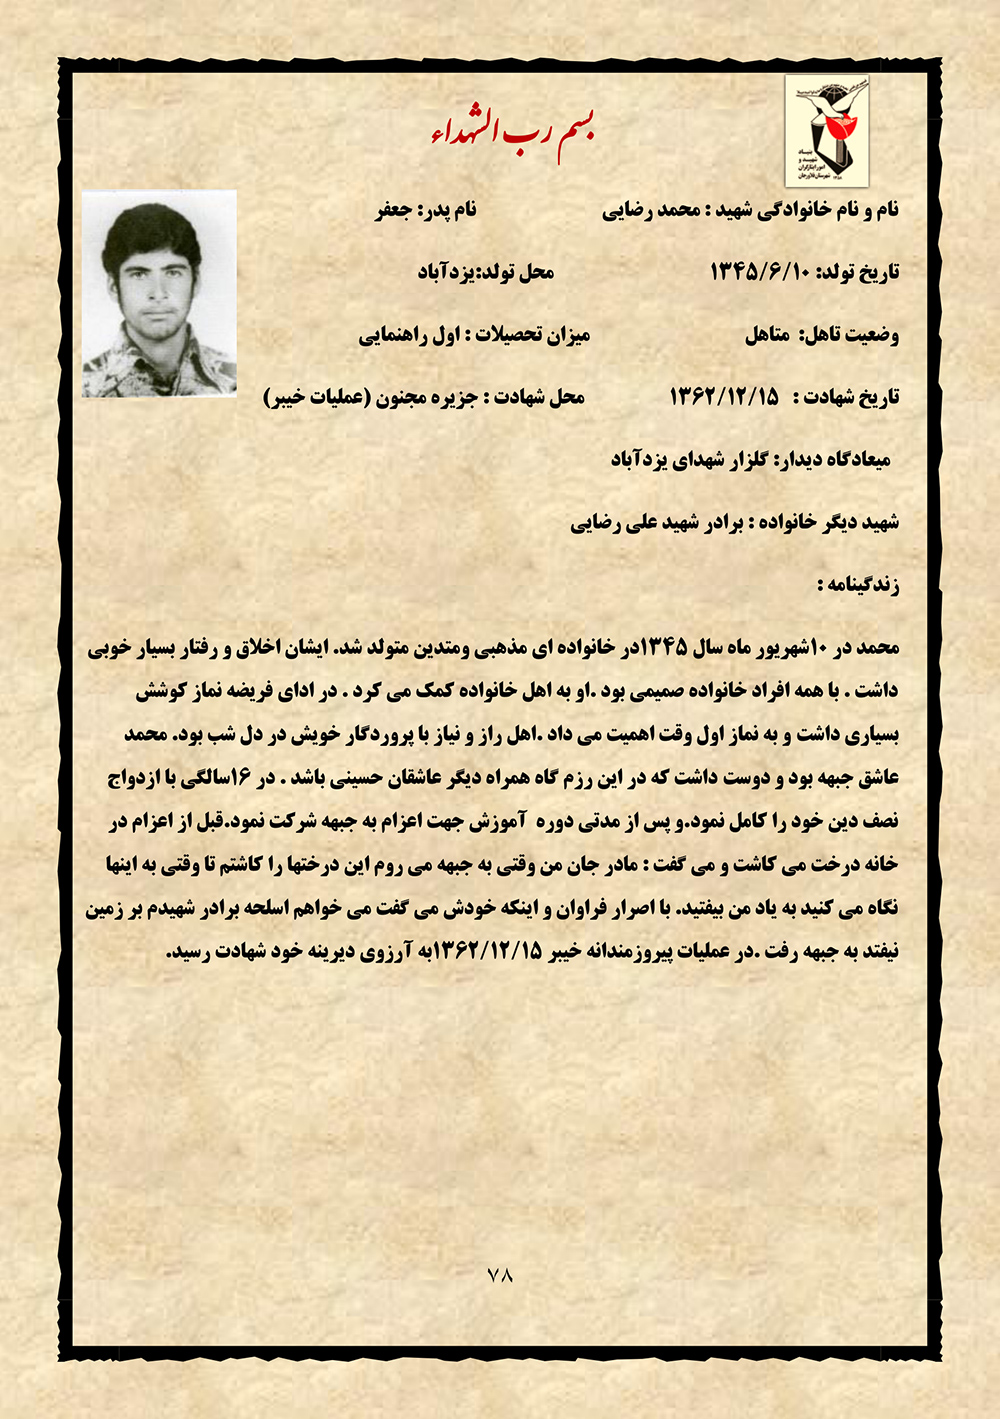 بسم رب الشهداء
بنیاد
شهید و
امور ایثارگران
شهرستان فلاورجان
نام و نام خانوادگی شهید : محمد رضایی نام پدر: جعفر
تاریخ تولد: ۱۳۴۵/۶/۱۰ محل تولد:یزدآباد
وضعیت تاهل: متاهل میزان تحصیلات : اول راهنمایی
تاریخ شهادت : ۱۳۶۲/۱۲/۱۵ محل شهادت : جزیره مجنون (عملیات خیبر)
میعادگاه دیدار: گلزار شهدای یزدآباد
شهید دیگر خانواده : برادر شهید علی رضایی
زندگینامه :
محمد در ۱۰شهریور ماه سال ۱۳۴۵در خانواده ای مذهبی ومتدین متولد شد. ایشان اخلاق و رفتار بسیار خوبی
داشت . با همه افراد خانواده صمیمی بود .او به اهل خانواده کمک می کرد . در ادای فریضه نماز کوشش
بسیاری داشت و به نماز اول وقت اهمیت می داد .اهل راز و نیاز با پروردگار خویش در دل شب بود. محمد
عاشق جبهه بود و دوست داشت که در این رزم گاه همراه دیگر عاشقان حسینی باشد . در ۱۶سالگی با ازدواج
نصف دین خود را کامل نمود.و پس از مدتی دوره آموزش جهت اعزام به جبهه شرکت نمود.قبل از اعزام در
خانه درخت می کاشت و می گفت : مادر جان من وقتی به جبهه می روم این درختها را کاشتم تا وقتی به اینها
نگاه می کنید به یاد من بیفتید. با اصرار فراوان و اینکه خودش می گفت می خواهم اسلحه برادر شهیدم بر زمین
نیفتد به جبهه رفت .در عملیات پیروزمندانه خیبر ۱۳۶۲/۱۲/۱۵به آرزوی دیرینه خود شهادت رسید.
۷۸